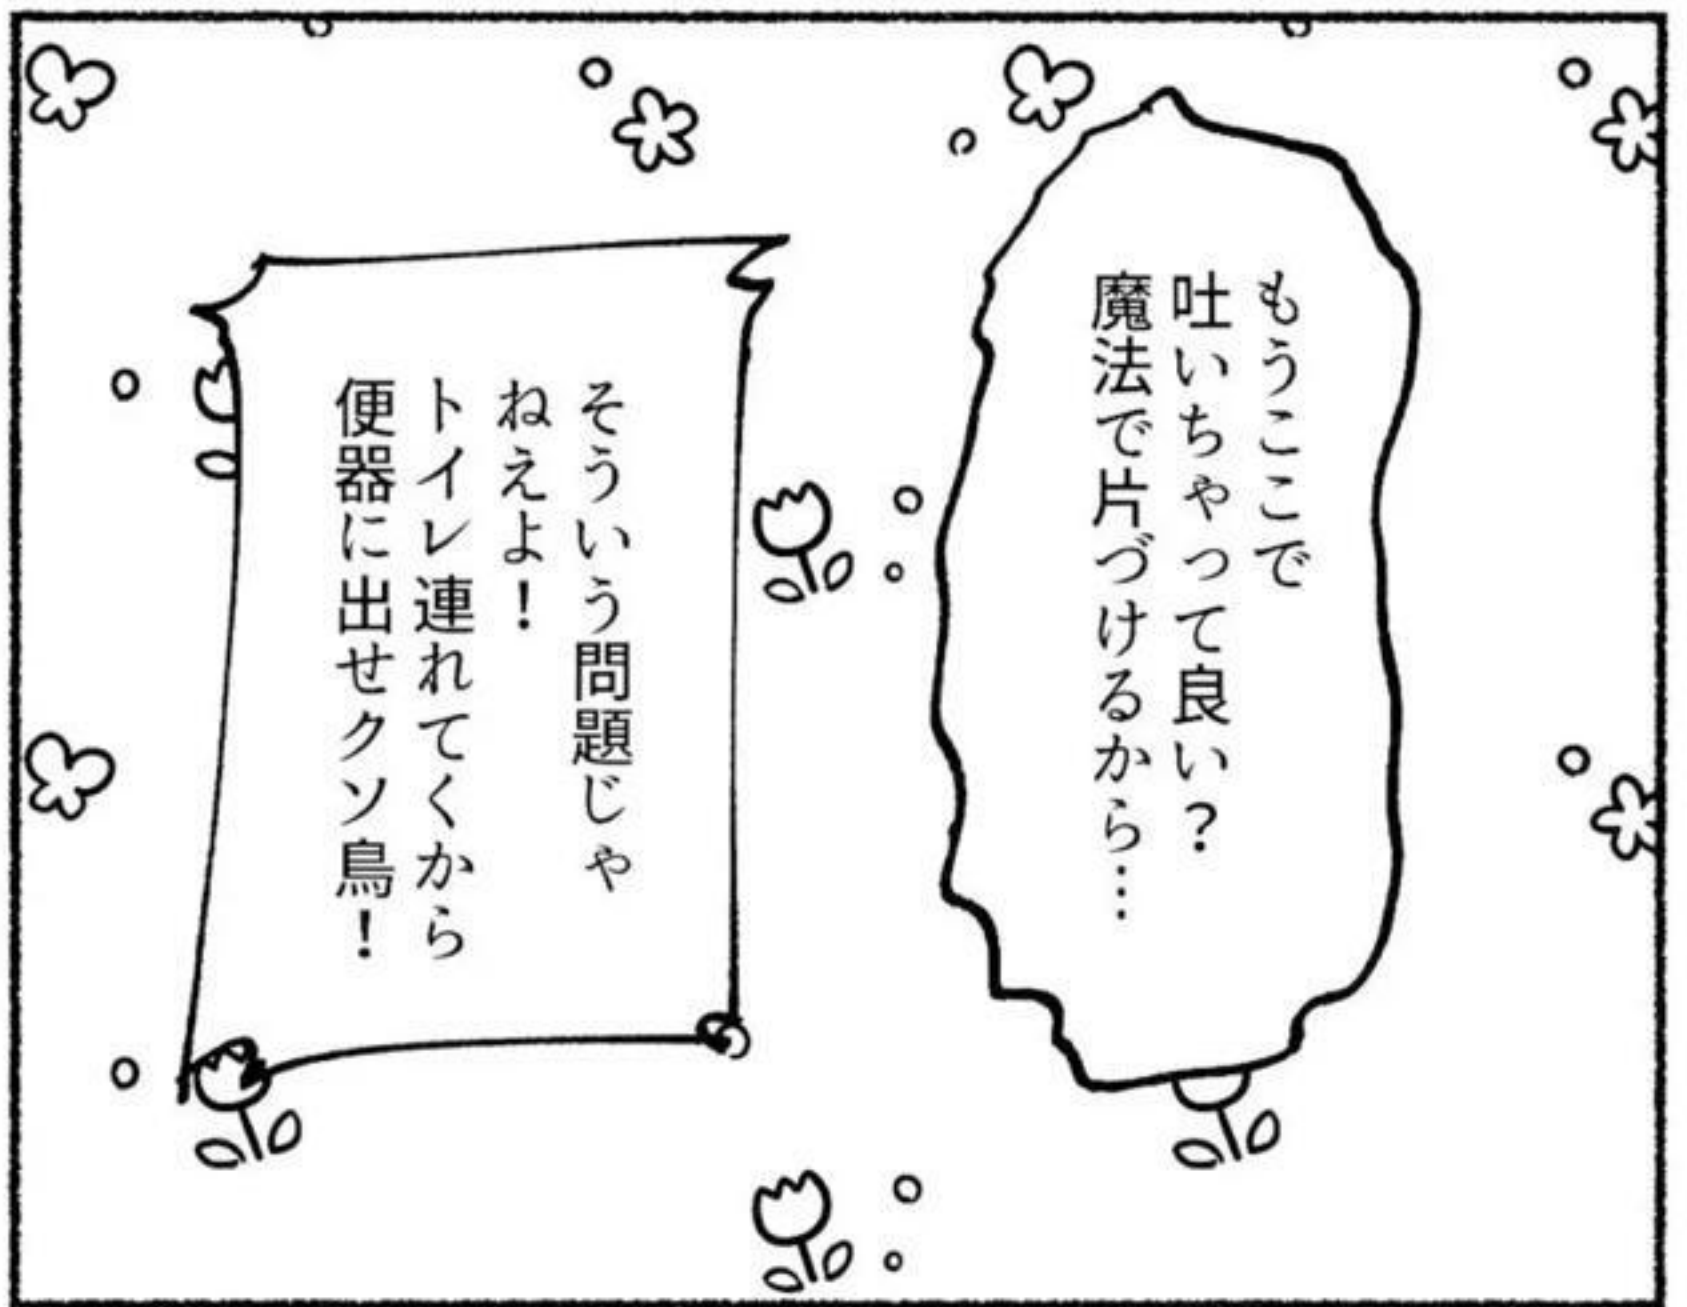 もうここで
吐いちゃって良い?
魔法で片づけるから…
そういう問題じゃ
ねえよ!
トイレ連れてくから
便器に出せクソ鳥!